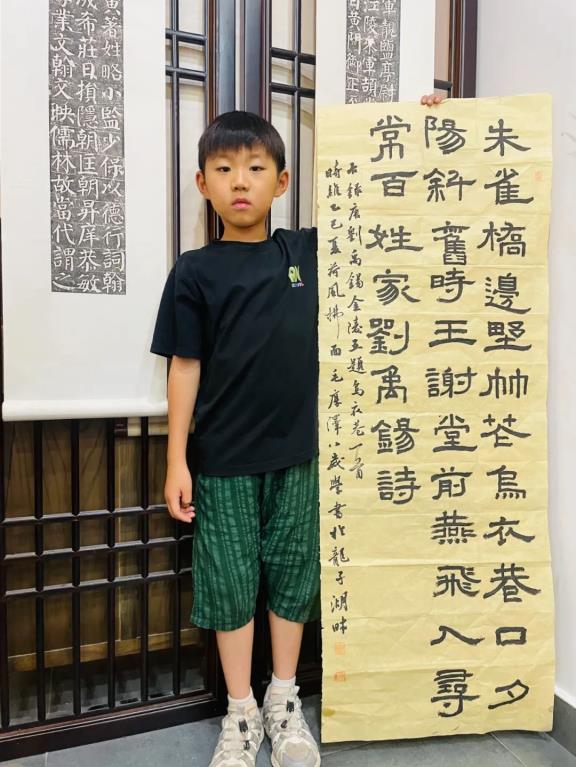 朱雀橋邊野艸花烏衣巷口夕
陽斜舊時王謝堂前燕飛入尋
常百姓家劉禹錫詩
右錄唐劉禹錫金陵五題烏衣巷一首
時維乙巳夏荷風拂面毛澤八歲學書於龍子湖畔
著姓略小監少保以德行詞翰
成希莊日損隱朝匡朝昇庠恭敏
業文翰文映儒林故當代謂之